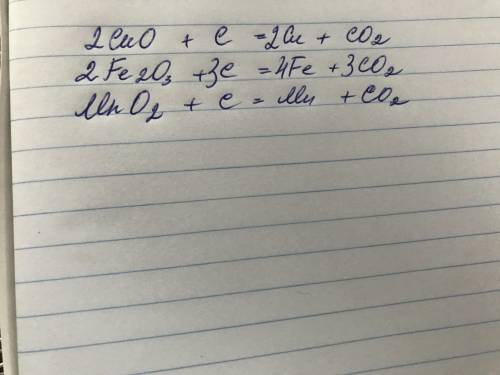 2CuO + C = 2Cu + CO2
2Fe2O3 + 3C = 4Fe + 3CO2
MnO2 + C = Mn + CO2